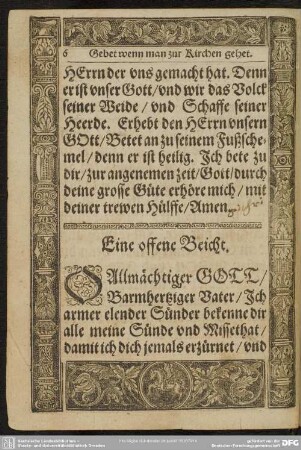 6 Gebet wenn man zur Kirchen gehet.
HErrn der vns gemacht hat. Denn
er ist vnser Gott / vnd wir das Volck
seiner Weide / vnd Schaffe seiner
Heerde. Erhebt den HErrn vnsern
GOtt / Betet an zu seinem Fußsche-
mel / denn er ist heilig. Ich bete zu
dir / zur angenemen zeit / Gott / durch
deine grosse Güte erhöre mich / mit
deiner trewen Hülffe / Amen
Eine offene Beicht.
O Allmächtiger GOTT /
Barmhertziger Vater / Ich
armer elender Sünder bekenne dir
alle meine Sünde vnd Missethat /
damit ich dich jemals erzürnet / vnd
DFG